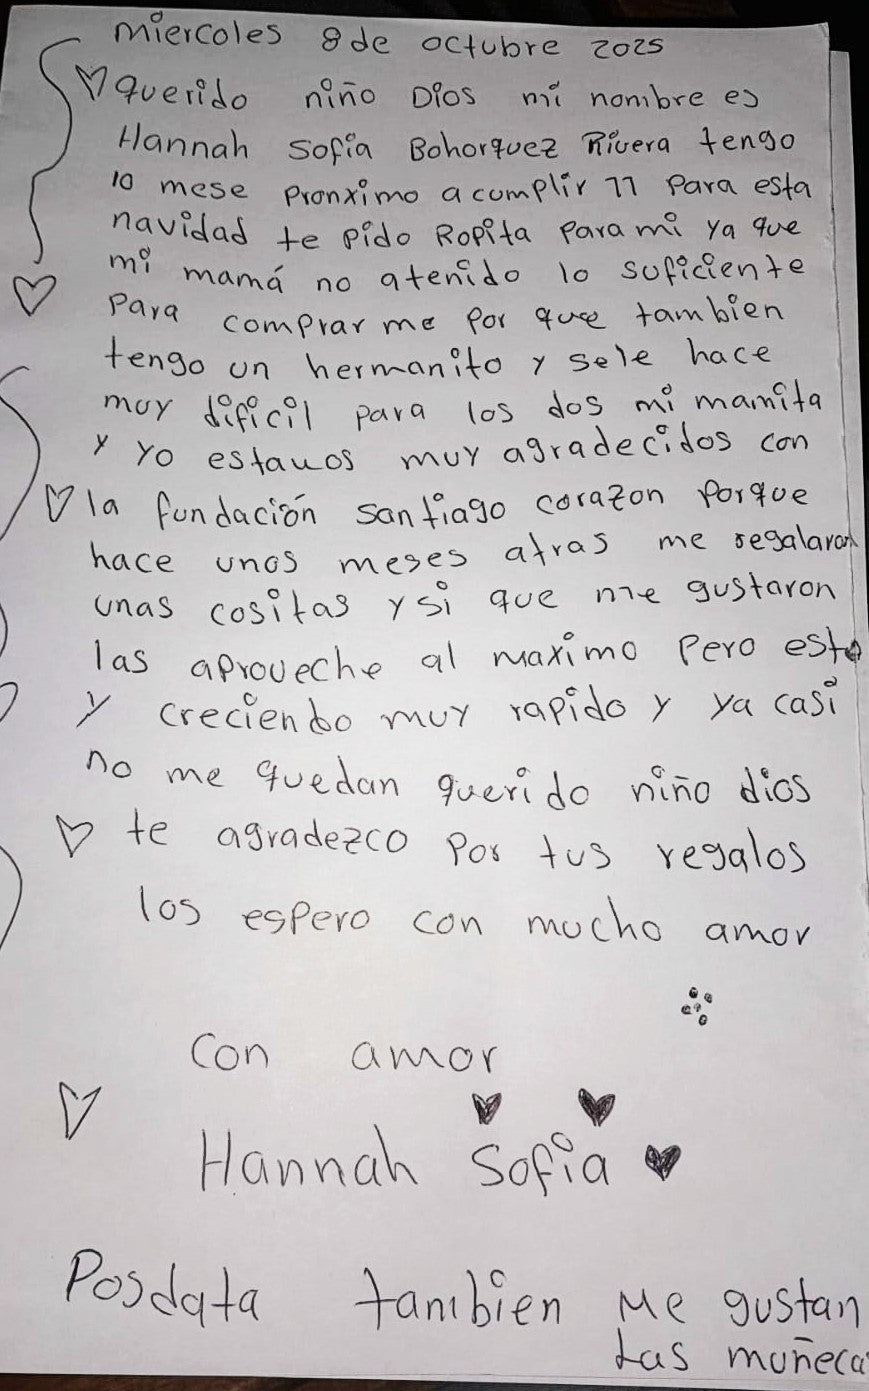 miercoles 8 de octubre 2025
querido niño Dios mi nombre es
Hannah Sofia Bohorquez Rivera tengo
10 mese pronximo a cumplir 11 para esta
navidad te pido Ropita para mi ya que
mi mamá no atenido lo suficiente
para comprar me por que tambien
tengo un hermanito y sele hace
muy dificil para los dos mi mamita
y yo estauos muy agradecidos con
la fundación santiago corazon porque
hace unos meses atras me regalaron
unas cositas y si que me gustaron
las aproveche al maximo pero esto
y creciendo muy rapido y ya casi
no me quedan querido niño dios
te agradezco por tus regalos
los espero con mucho amor
con amor
Hannah Sofia
Posdata tambien Me gustan
Las muñeca